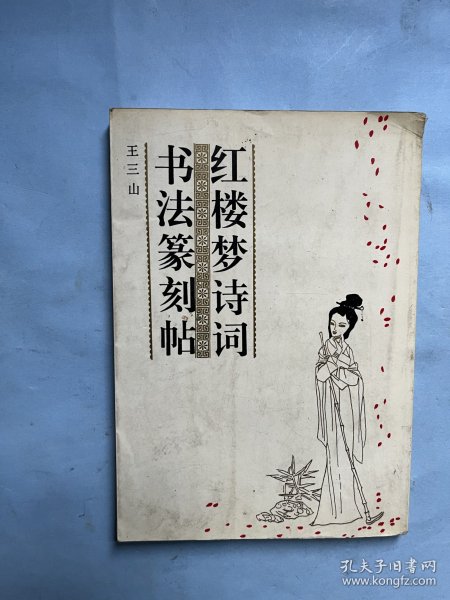 红楼梦诗词
书法篆刻帖
王三山
孔夫子旧书网
www.kongfz.com